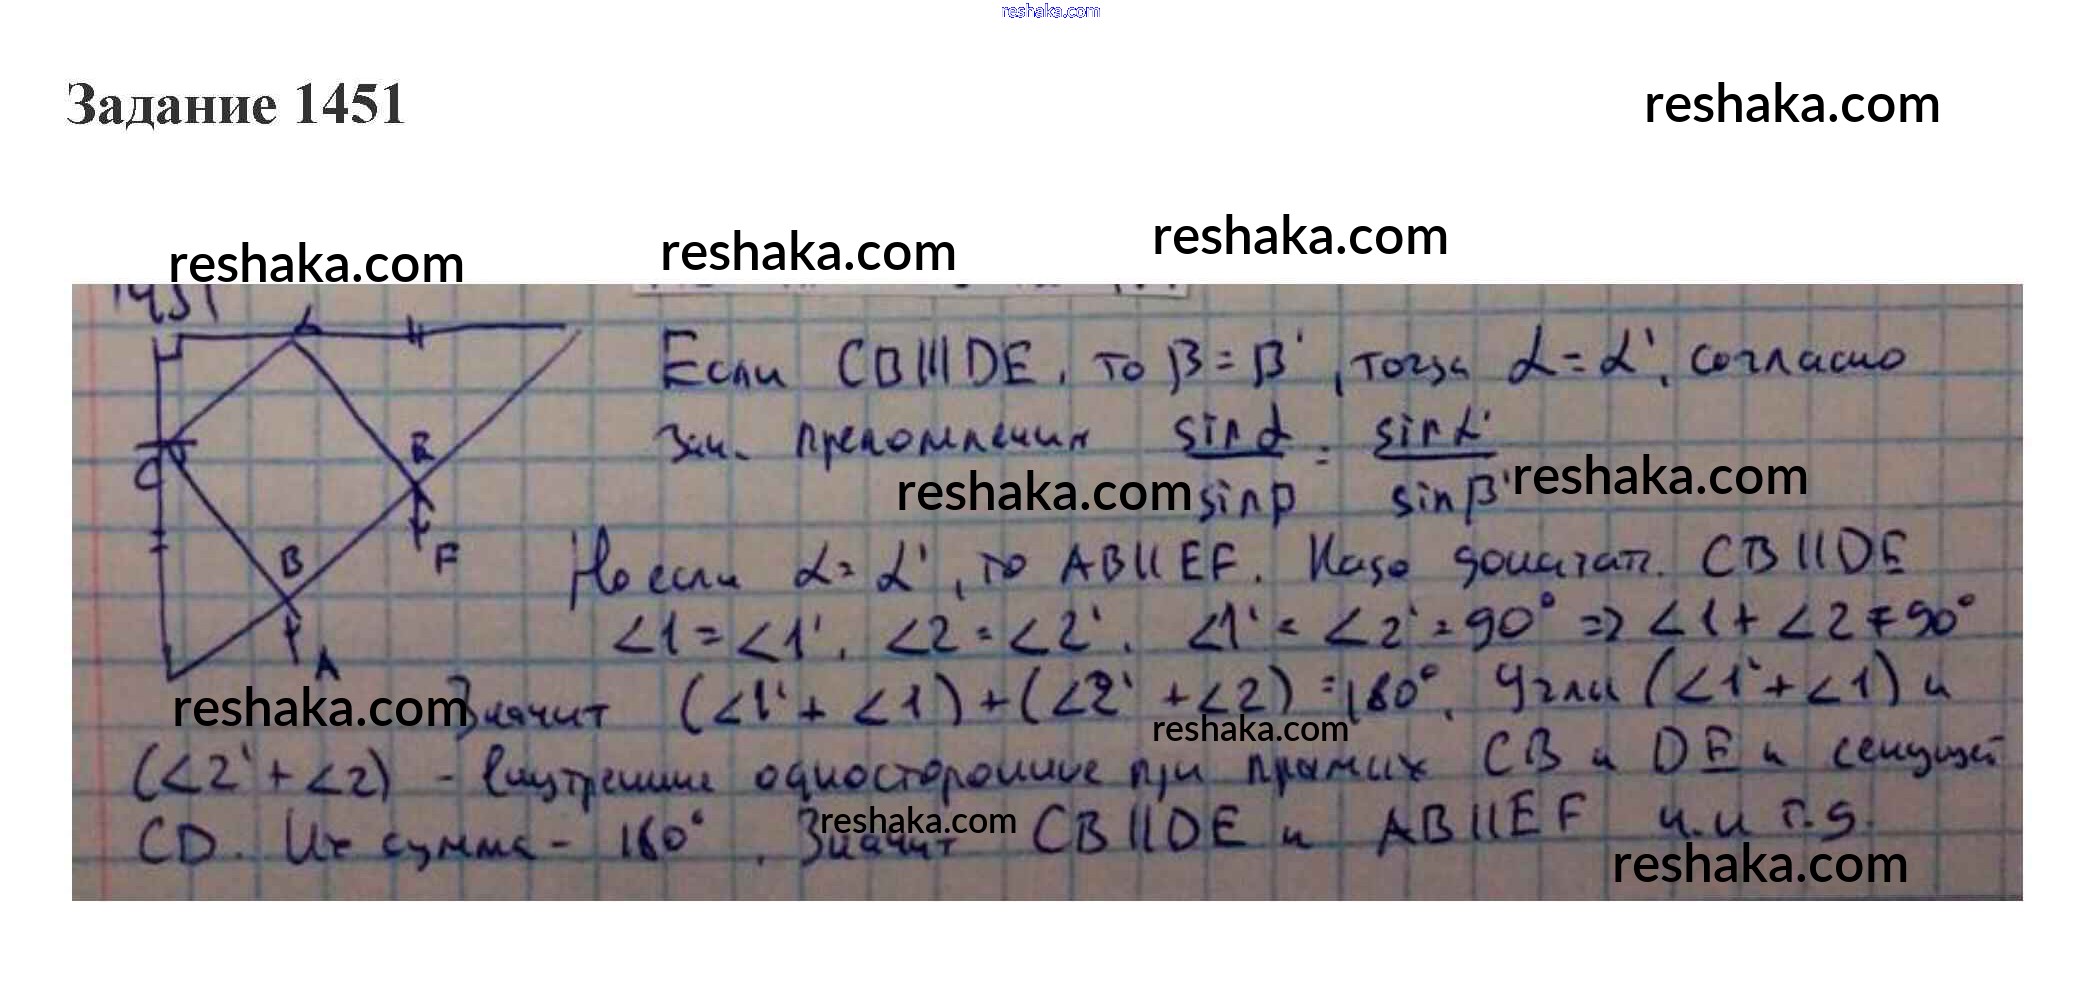 reshaka.com
Задание 1451
reshaka.com
reshaka.com
reshaka.com
reshaka.com
1451
Если CB||DE, то β = β', тогда α = α', согласно
зак. преломления sin α / sin β = sin α' / sin β'
reshaka.com
reshaka.com
Но если α = α', то AB || EF. Надо доказат. CB || DE
∠1 = ∠1', ∠2 = ∠2', ∠1' + ∠2' = 90° => ∠1 + ∠2 = 90°
Значит (∠1' + ∠1) + (∠2' + ∠2) = 180°. Углы (∠1' + ∠1) и
reshaka.com
reshaka.com
(∠2' + ∠2) - внутренние односторонние при прямых CB и DE и секущей
CD. Их сумма - 180°. Значит CB || DE и AB || EF ч. и т. д.
reshaka.com
reshaka.com
C
B
A
E
F